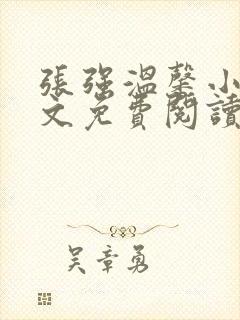 張強溫馨小
文免費閱讀
吴章勇